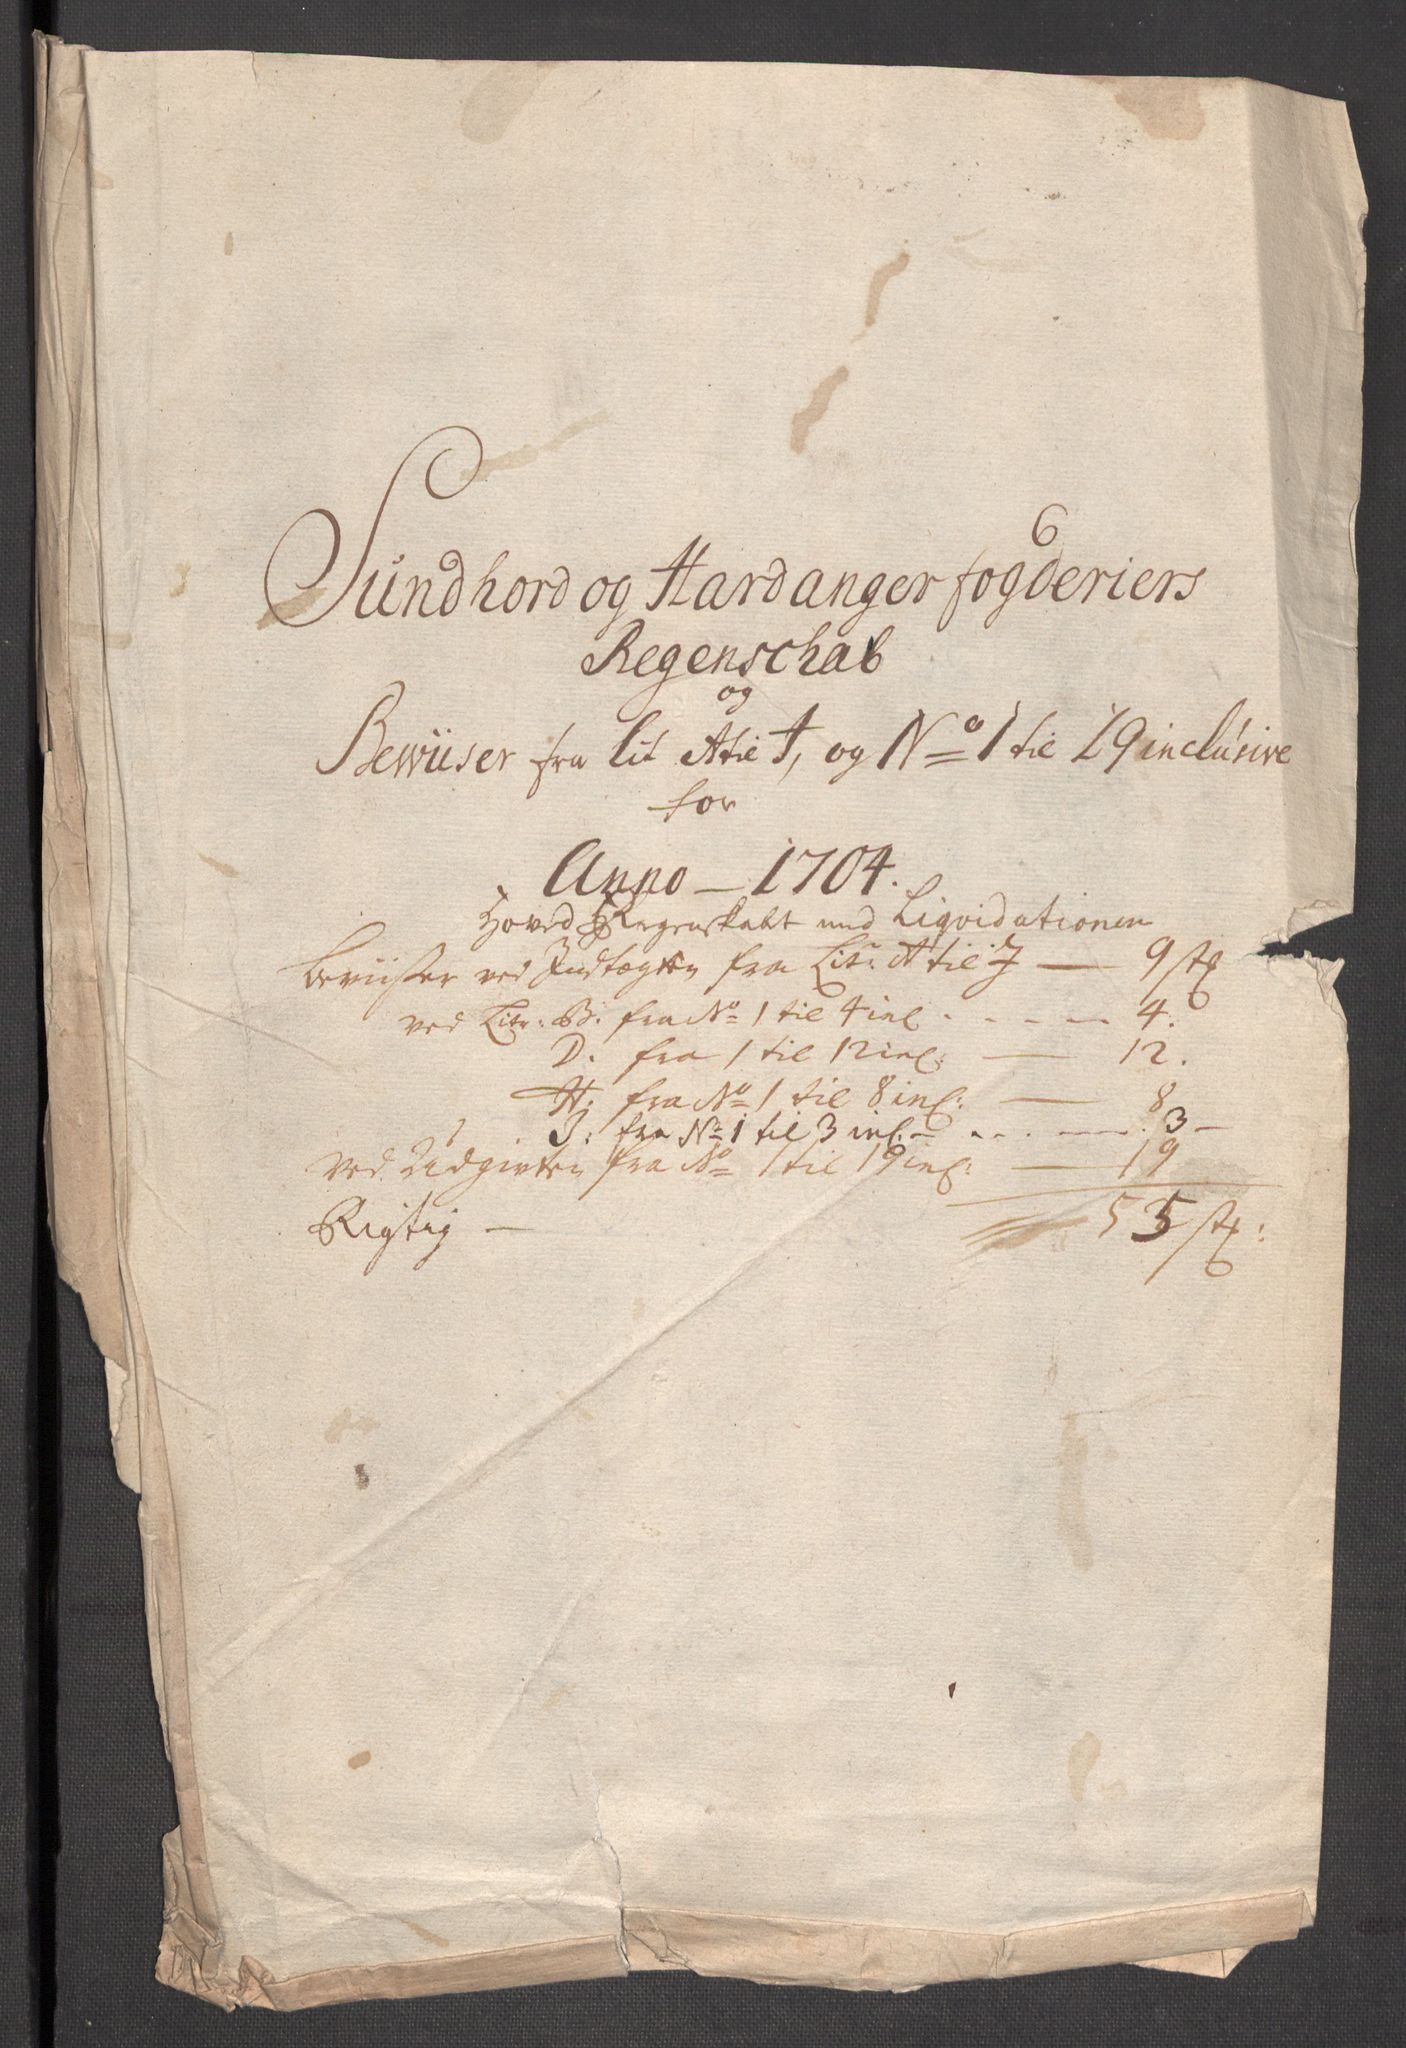 Sundhord og Hardanger fogderiers
Regenschab
og
Bewiiser fra Lit A til J, og No 1 til 19 inclusive
for
Anno — 1704.
Hoved Regenskabt med Liqvidationen
Beviisser ved Indtægten fra Litr: A til J — 9 stk
ved Litr: B. fra No 1 til 4 incl . - . - — 4.
D. fra 1 til 12 incl: — 12.
H: fra No 1 til 8 incl: — 8
J: fra No: 1 til 3 incl. — . . . — . 3 —
Ved Udgivten fra No 1 til 19 incl: — 19
Rigtig — 55 stk: